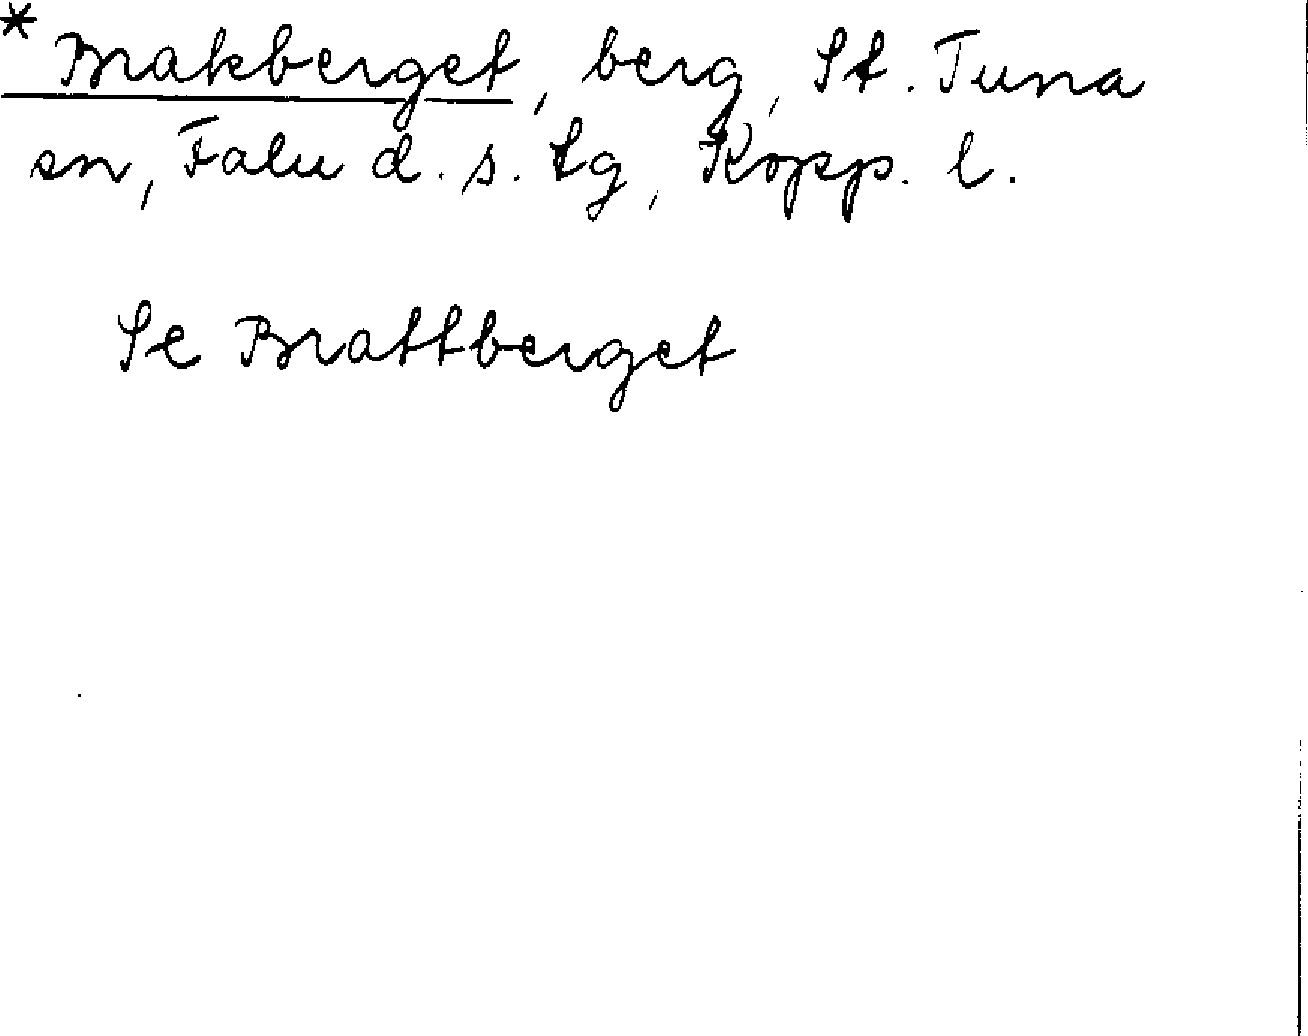 * Brakberget, berg, St. Tuna
sn, Falu d. s. tg, Kopp. l.
Se Brattberget